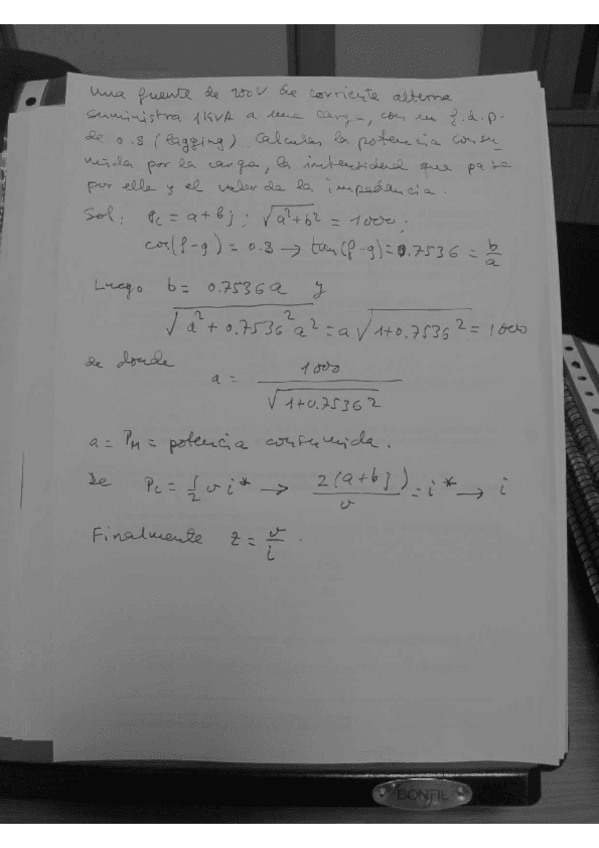 Una fuente de 200V de corriente alterna
suministra 1KVA a una carga, con un f.d.p.
de 0.8 (lagging). Calcular la potencia consu
mida por la carga, la intensidad que pasa
por ella y el valor de la impedancia.
Sol: Pc = a+bj ; √(a²+b²) = 1000 ;
cos(φ-φ) = 0.8 → tan(φ-φ) = 0.7536 = b/a
Luego b = 0.7536 a y
√(a² + 0.7536² a²) = a √(1+0.7536²) = 1000
de donde
a = 1000 / √(1+0.7536²)
a = PM = potencia consumida.
De Pc = 1/2 v i* → 2(a+bj)/v = i* → i
Finalmente z = v/i .
BONFIL